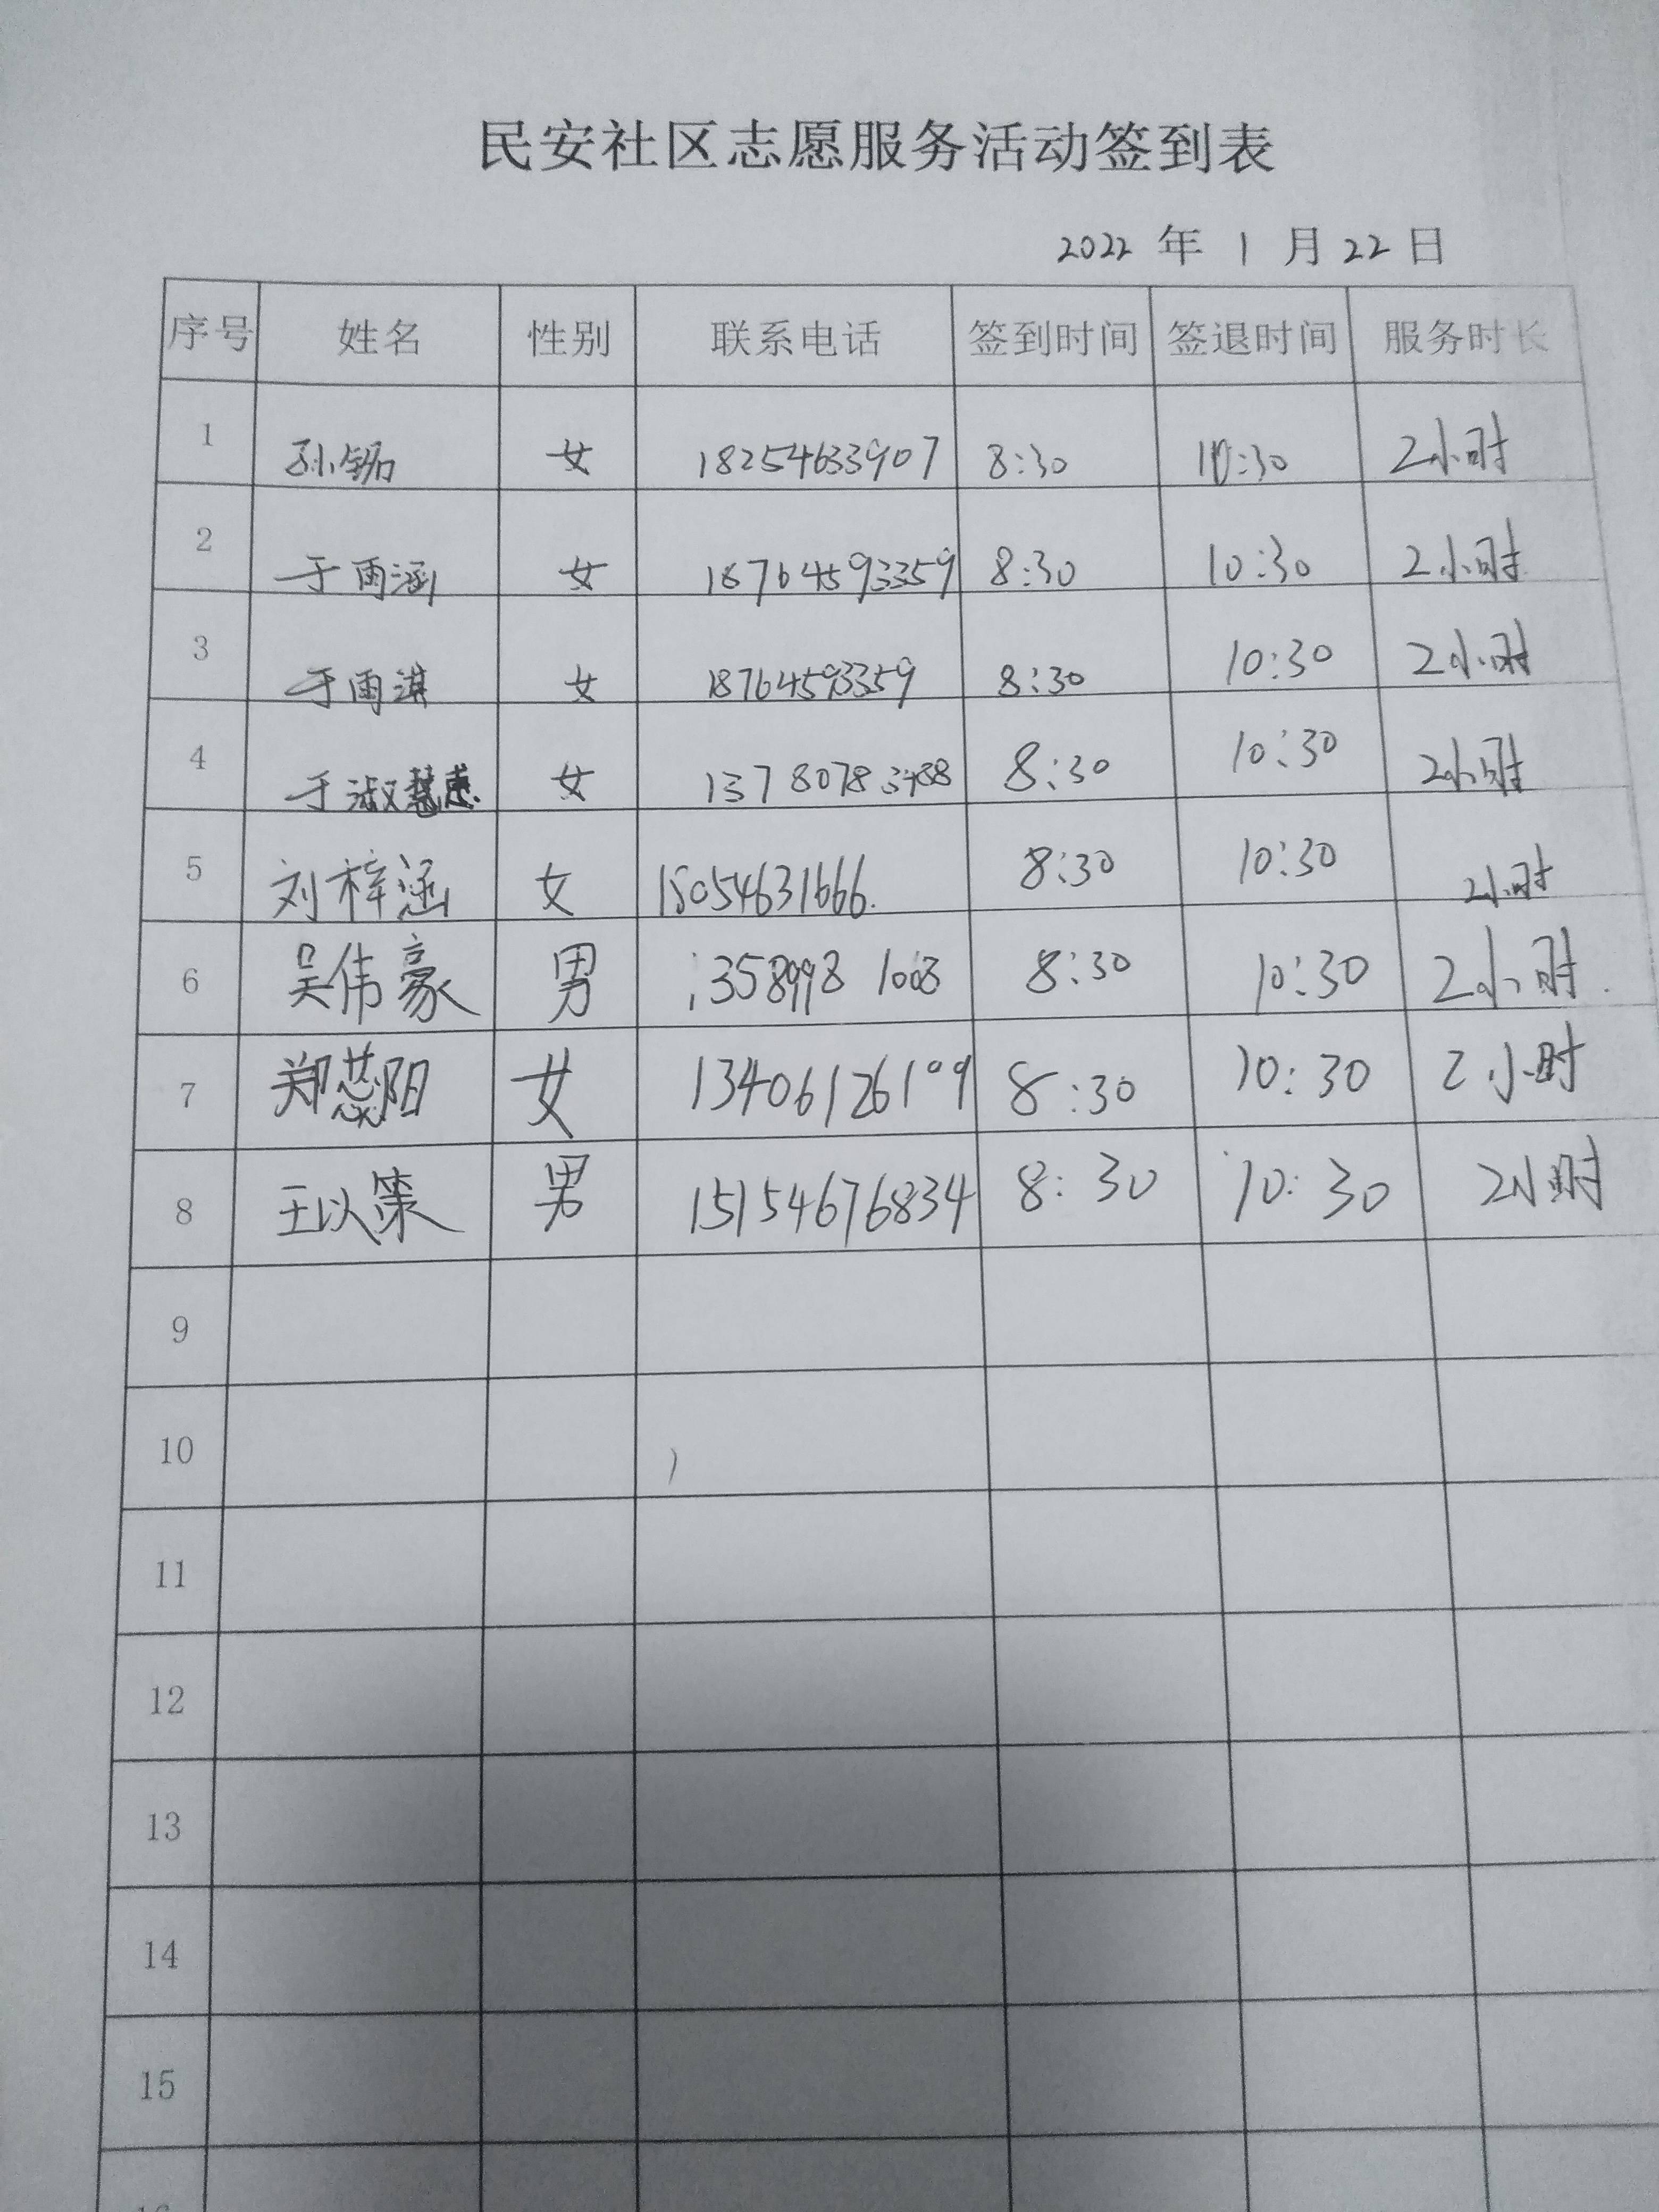 民安社区志愿服务活动签到表
2022 年 1 月 22 日
序号 姓名 性别 联系电话 签到时间 签退时间 服务时长
1 孙铴 女 18254633907 8:30 10:30 2小时
2 于雨涵 女 18764593359 8:30 10:30 2小时
3 于雨淇 女 18764593359 8:30 10:30 2小时
4 于淑慧 女 13780783488 8:30 10:30 2小时
5 刘梓涵 女 15054631666. 8:30 10:30 2小时
6 吴伟豪 男 13589981008 8:30 10:30 2小时.
7 郑蕊阳 女 13406126109 8:30 10:30 2小时
8 王以策 男 15154676834 8:30 10:30 2小时
9
10
11
12
13
14
15